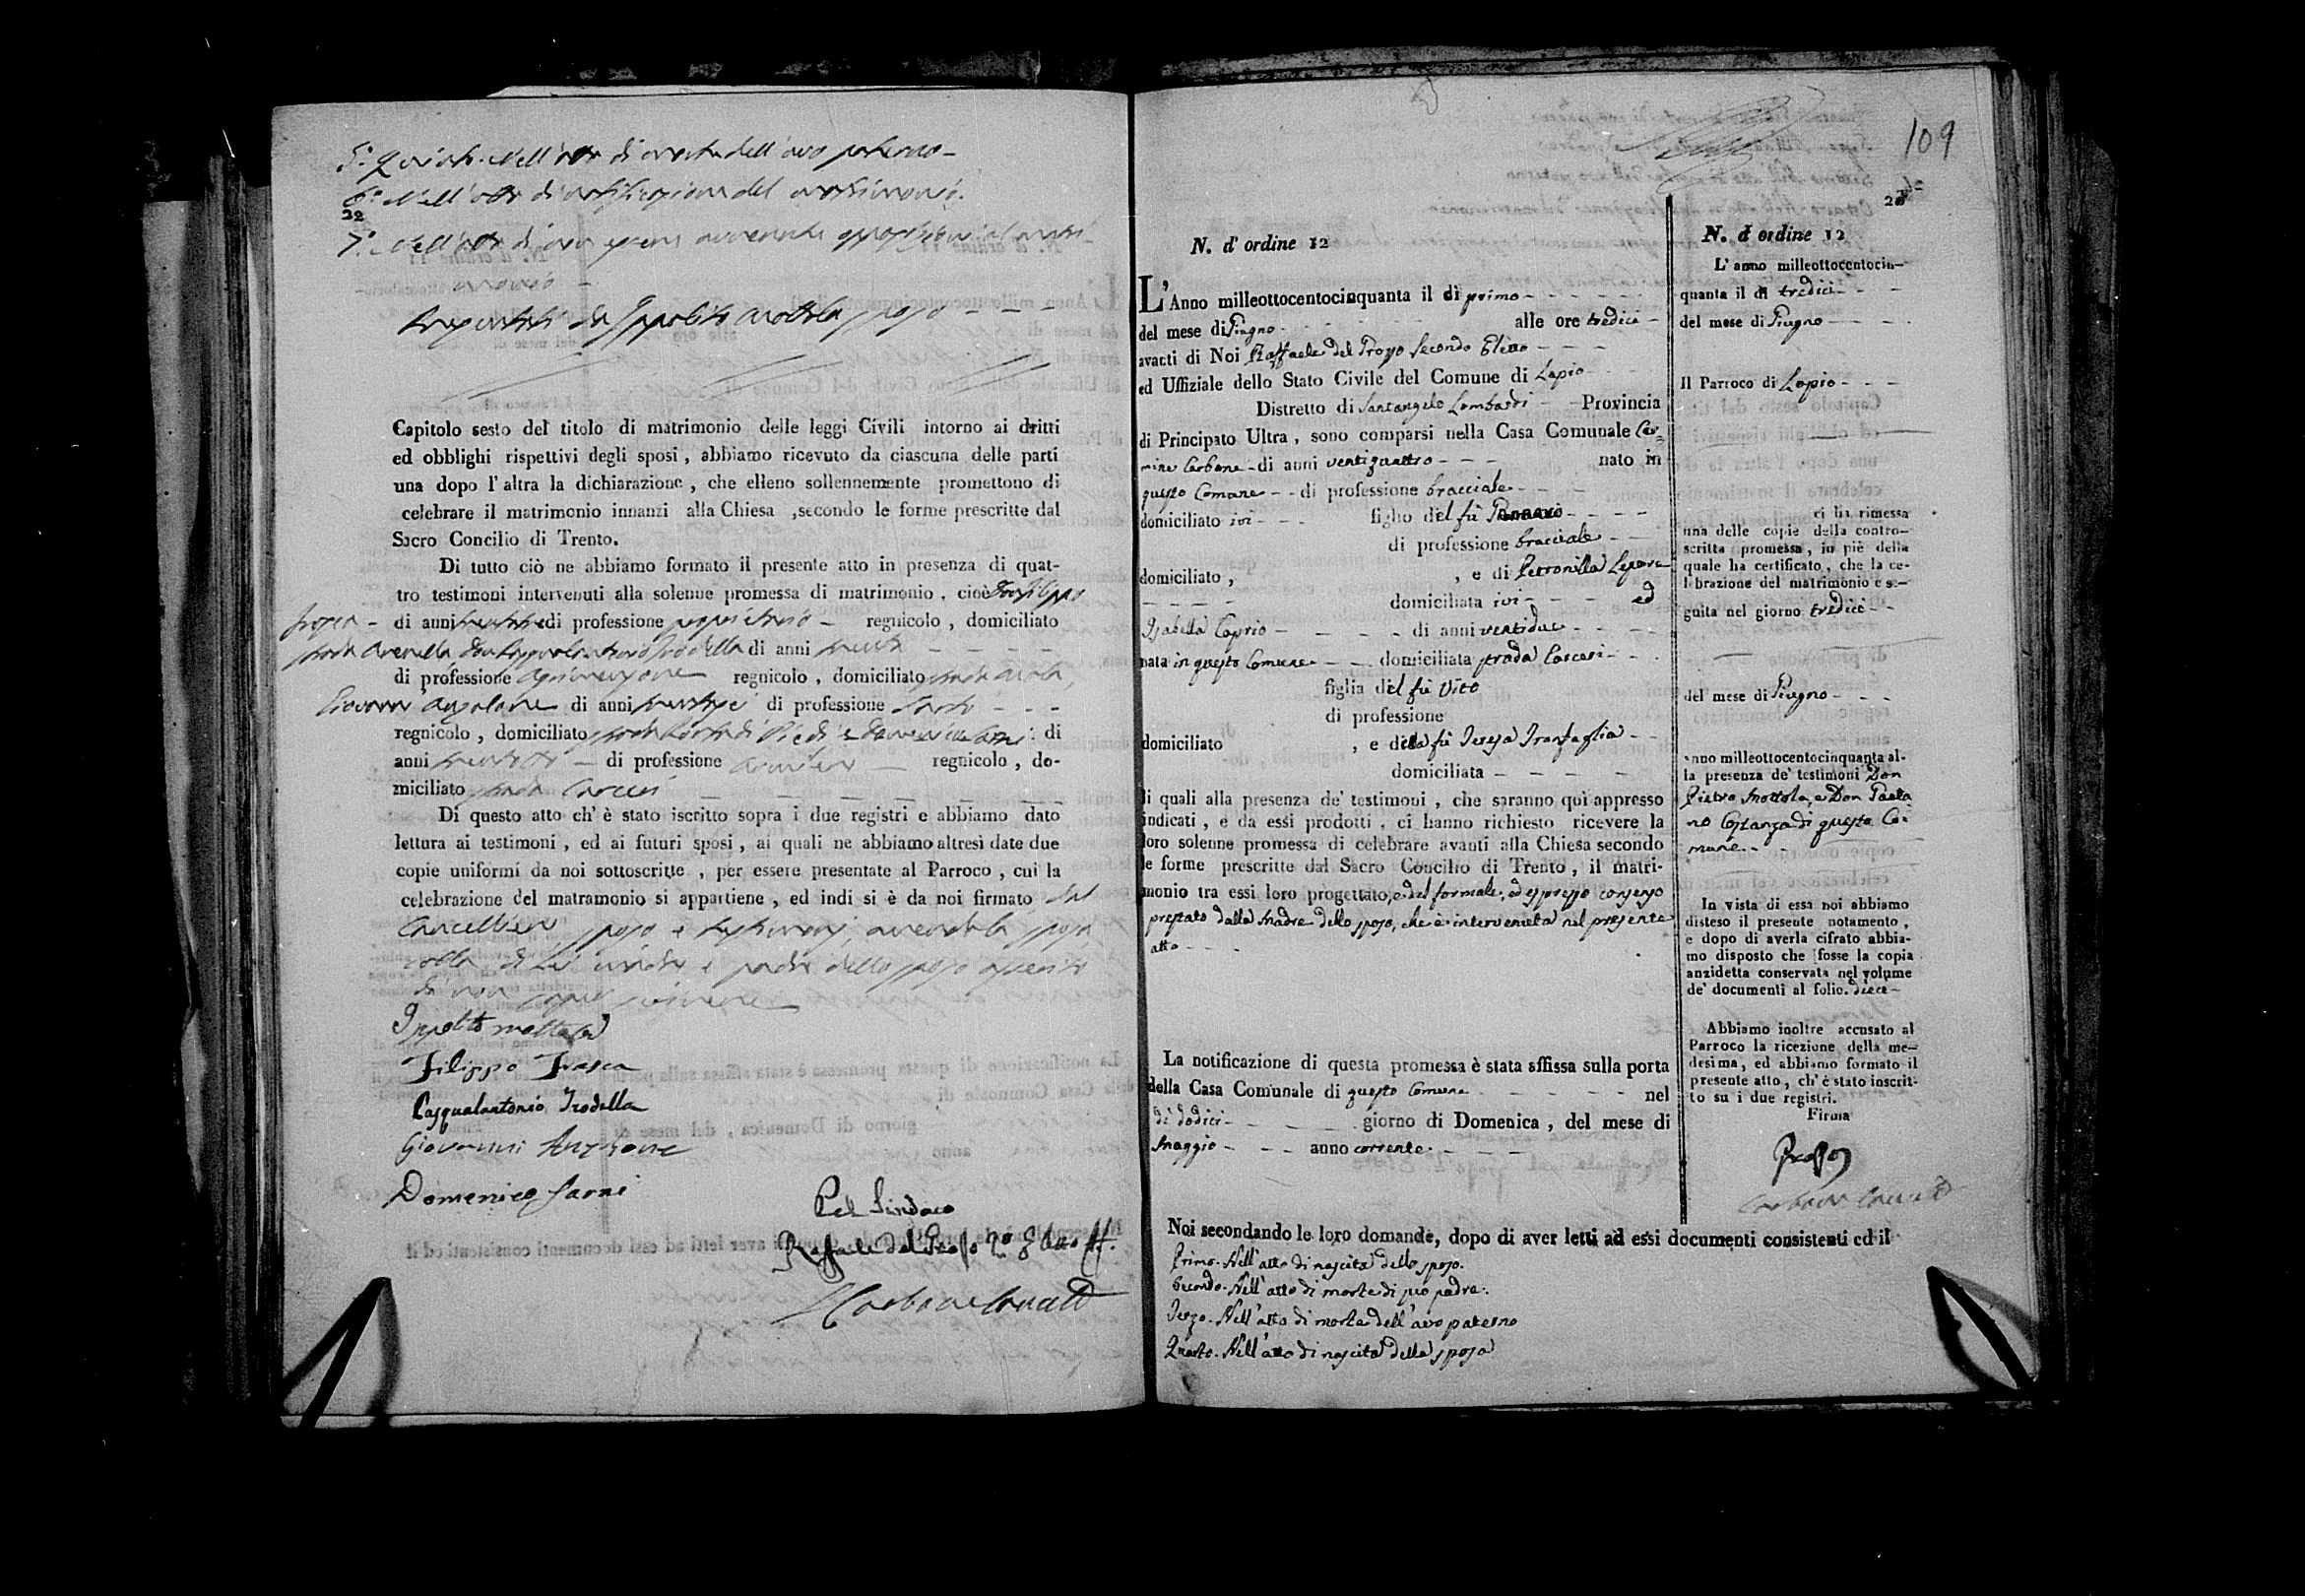 5.° Quinto. Nell'atto di morte dell'avo paterno -
6.° Nell'atto di notificazione del matrimonio.
22
7.° Nell'atto di non essere avvenuta opposizione al matri-
monio -
Ippolito Mottola sposo - - -
Capitolo sesto del titolo di matrimonio delle leggi Civili intorno ai dritti
ed obblighi rispettivi degli sposi, abbiamo ricevuto da ciascuna delle parti
una dopo l'altra la dichiarazione, che elleno sollennemente promettono di
celebrare il matrimonio innanzi alla Chiesa ,secondo le forme prescritte dal
Sacro Concilio di Trento.
Di tutto ciò ne abbiamo formato il presente atto in presenza di quat-
tro testimoni intervenuti alla solenne promessa di matrimonio, cioè Don Filippo
di anni di professione proprietario - regnicolo, domiciliato
strada Arenella Don Pasqualantonio Trodella di anni
di professione regnicolo, domiciliato strada
Giovanni Anzalone di anni di professione Sarto - - -
regnicolo, domiciliato strada di Piedi e Domenico di
anni - di professione - regnicolo, do-
miciliato strada Carceri
Di questo atto ch'è stato iscritto sopra i due registri e abbiamo dato
lettura ai testimoni, ed ai futuri sposi, ai quali ne abbiamo altresì date due
copie uniformi da noi sottoscritte, per essere presentate al Parroco, cui la
celebrazione del matramonio si appartiene, ed indi si è da noi firmato dal
Cancelliere, sposo e testimonj, avendo la sposa
colla di lei madre e padre dello sposo asserito
di non sapere scrivere
Ippolito Mottola
Filippo Frasca
Pasqualantonio Trodella
Giovanni Anzalone
Domenico Sarni
Pel Sindaco
Raffaele del Prosso 2° Eletto
Carbone Canc.
109
N. d'ordine 12
L'Anno milleottocentocinquanta il dì primo - - - -
del mese di Giugno - - - alle ore tredici -
avacti di Noi Raffaele del Prosso Secondo Eletto - - -
ed Uffiziale dello Stato Civile del Comune di Lapio - -
Distretto di Santangelo Lombardi - - Provincia
di Principato Ultra, sono comparsi nella Casa Comunale Car-
mine Carbone - di anni ventiquattro - - - nato in
questo Comune - - di professione bracciale - - -
domiciliato ivi - - - figlio del fù
di professione bracciale - -
domiciliato, , e di Petronilla Lepore
- - - - domiciliata ivi - - - ed
Isabella Caprio - - - - di anni ventidue - - -
nata in questo Comune - - domiciliata strada Carceri - - -
figlia del fù Vito
di professione
domiciliato , e della fù Teresa Tranfaglia - -
domiciliata - - - -
li quali alla presenza de' testimoni, che saranno qui appresso
indicati, e da essi prodotti, ci hanno richiesto ricevere la
loro solenne promessa di celebrare avanti alla Chiesa secondo
le forme prescritte dal Sacro Concilio di Trento, il matri-
monio tra essi loro progettato, e del formale, ed espresso consenso
prestato dalla Madre dello sposo, che è intervenuta nel presente
atto - - -
La notificazione di questa promessa è stata affissa sulla porta
della Casa Comunale di questo Comune - - - - nel
dì dodici - - - - giorno di Domenica, del mese di
Maggio - - - anno corrente - - - -
Noi secondando le loro domande, dopo di aver letti ad essi documenti consistenti ed il
Primo. Nell'atto di nascita dello sposo.
Secondo. Nell'atto di morte di suo padre.
Terzo. Nell'atto di morte dell'avo paterno
Quarto. Nell'atto di nascita della sposa
N. d ordine 12
L'anno milleottocentocin-
quanta il dì tredici - - -
del mese di Giugno - - -
Il Parroco di Lapio - - -
ci ha rimessa
una delle copie della contro-
scritta promessa, in piè della
quale ha certificato, che la ce-
lebrazione del matrimonio è se-
guita nel giorno tredici - -
del mese di Giugno - - -
anno milleottocentocinquanta al-
la presenza de' testimoni Don
Pietro Mottola, e Don Paola
no Costanza di questo Co-
mune - -
In vista di essa noi abbiamo
disteso il presente notamento,
e dopo di averla cifrato abbia-
mo disposto che fosse la copia
anzidetta conservata nel volume
de' documenti al folio. dieci -
Abbiamo inoltre accusato al
Parroco la ricezione della me-
desima, ed abbiamo formato il
presente atto, ch'è stato inscrit-
to su i due registri.
Firma
Carbone Canc.